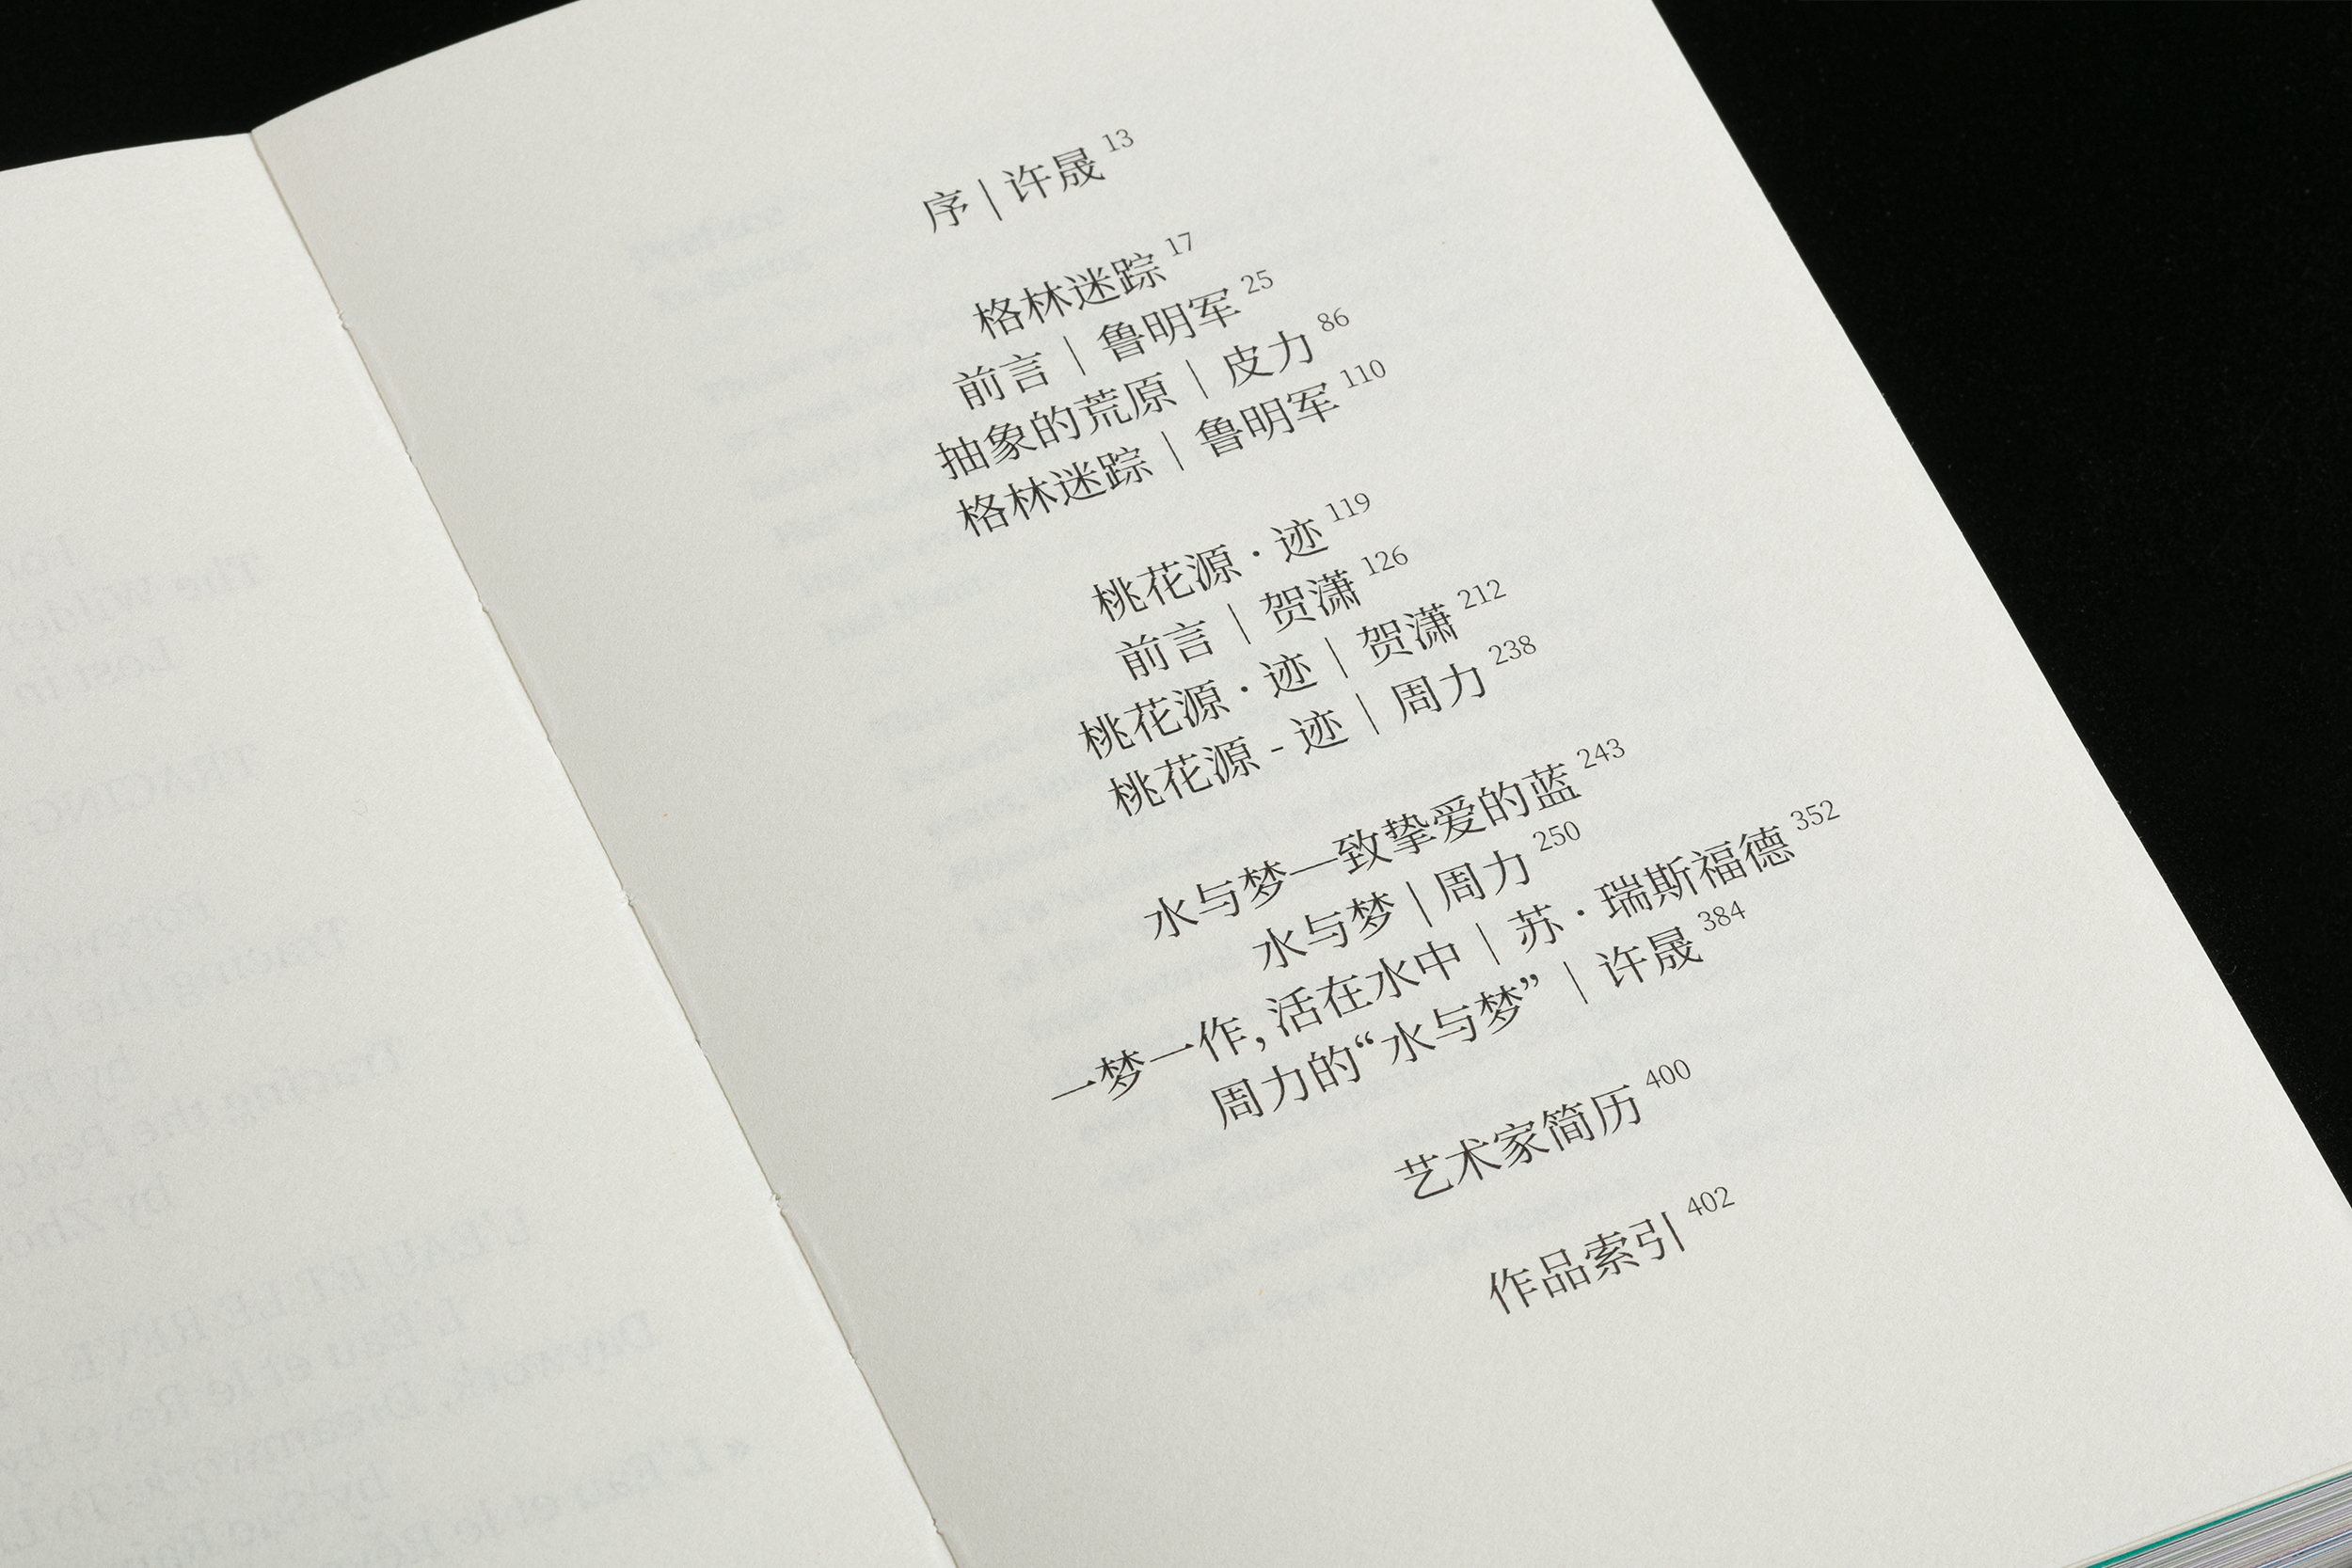 序 | 许晟 13
格林迷踪 17
前言 | 鲁明军 25
抽象的荒原 | 皮力 86
格林迷踪 | 鲁明军 110
桃花源 · 迹 119
前言 | 贺潇 126
桃花源 · 迹 | 贺潇 212
桃花源 - 迹 | 周力 238
水与梦—致挚爱的蓝 243
水与梦 | 周力 250
一梦一作, 活在水中 | 苏 · 瑞斯福德 352
周力的“水与梦” | 许晟 384
艺术家简历 400
作品索引 402